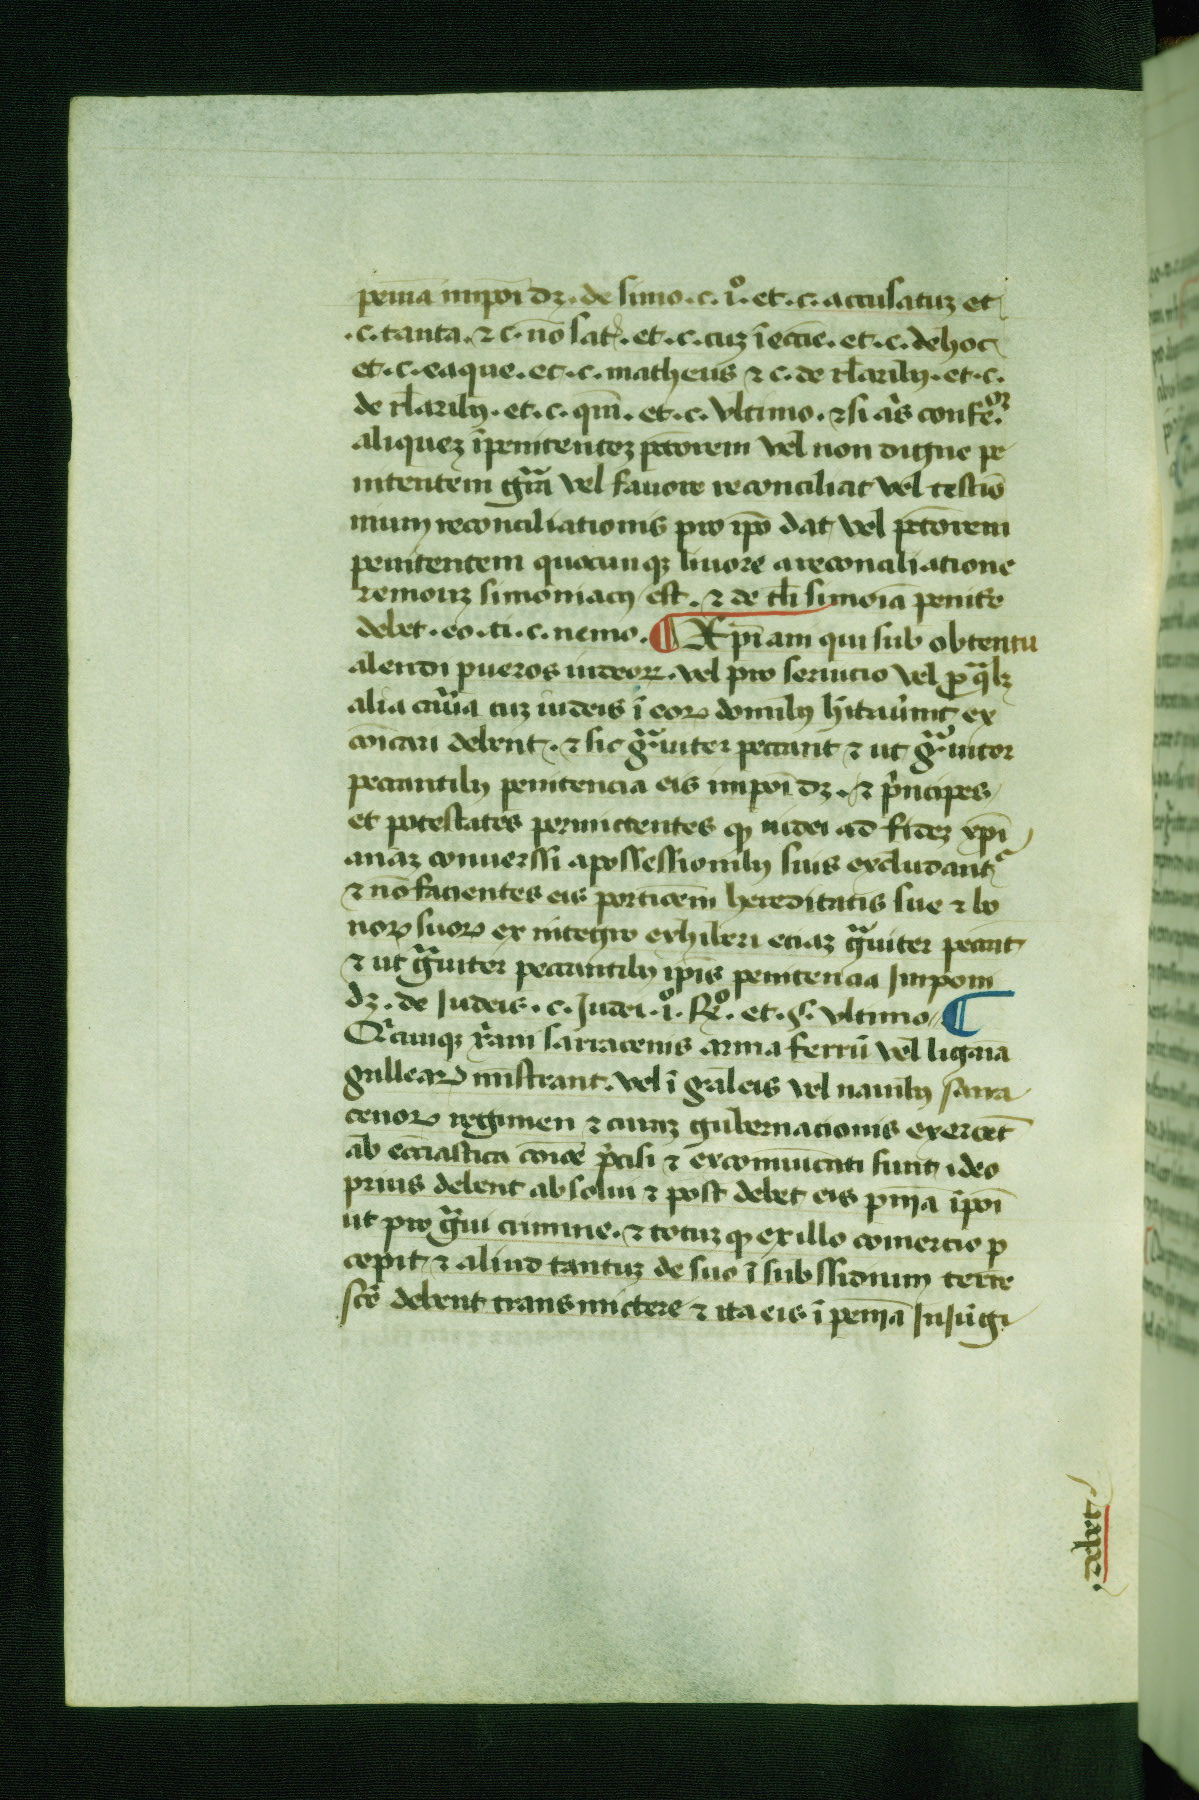 penitẽa impoi dꝫ. de simo. c. i.º et. c. accusatuꝫ et
.c. tanta. ⁊ c. nõ sat. et. c. cuꝫ ĩ ecc̃ie. et. c. de hoc
et. c. eaque. et. c. matheus ⁊ c. de rl̃aribꝫ. et. c.
de rl̃aribꝫ. et. c. qm̃. et. c. vltimo. ⁊ si aĩs confeⁱ.
aliqueꝫ ĩpenitenteꝫ pctõrem vel non digne pe
nitentem grã vel fauore reconciliat vel testio
nium reconciliationis pro ip̃o dat vel pctõrem
penitentem quocunqꝫ liuore a reconciliatione
remouꝫ simoniacꝰ est. ⁊ de tl̃i simoĩa penit̃e
debet. eo. ti. c. nemo. ¶ Xp̃iam qui sub obtentu
alendi pueros iudeoꝝ. vel pro seruicio vel ꝓ qͣlꝫ
alia cãua cuꝫ iudeis ĩ eoꝝ domibꝫ h̃itauũt ex
coĩcari debent. ⁊ sic gͣuiter peccant ⁊ ut gͣuiter
peccantibꝫ penitencia eis impoi dꝫ. ⁊ pⁱncipes
et potestates permictentes ꝙ iudei ad fideꝫ xp̃i
anaꝫ conuerssi a possessionibꝫ suis excludant᷑
⁊ nõ facientes eis porticẽm hereditatis sue ⁊ bo
noꝝ suoꝝ ex integro exhiberi eciaꝫ gͣuiter peccant
⁊ ut gͣuiter peccantibꝫ ip̃is penitencia Imponi
dꝫ. de Iudeis. c. Iudei. i.º Rº. et. §. vltimo. ¶
Qⁱcunqꝫ x̃ani sarracenis arma ferrũ vel ligãia
gallearꝝ mĩstrant. vel ĩ galeis vel nauibꝫ sarra
cenoꝝ regimen ⁊ curaꝫ gubernacionis exercẽt
ab eccl̃iastica coĩoẽ p̃cisi ⁊ excomũicati sunt ideo
prius debent absolui ⁊ post debet eis pñia ĩpoi
ut pro gͣui crimine. ⁊ totuꝫ ꝙ ex illo comercio ꝑ
cepit ⁊ aliud tantuꝫ de suo ĩ subssidium terre
sctẽ debent transmictere ⁊ ita eis ĩ peñia Iniũgi
.debet.